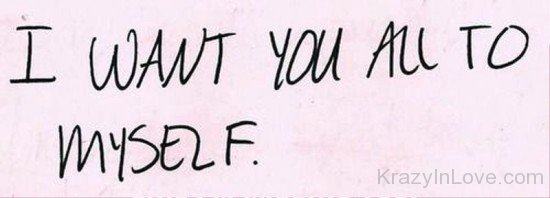 I WANT YOU ALL TO
MYSELF.
KrazyInLove.com